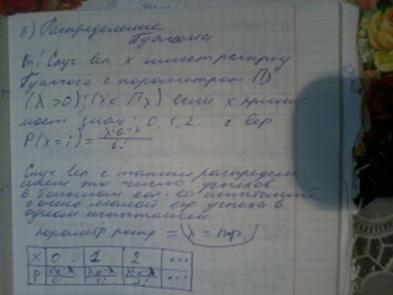 3) Распределение
Пуассона
Оп: Случ вел x имеет распред
Пуассона с параметром (λ)
(λ>0); (x∈Πλ) если x прини
мает знач: 0, 1, 2. с вер
P(x=i)=λⁱe^-λ/i!
Случ вел с таким распредел
имеет то число успехов
в большом кол-во испытаний
с очень малой вер успеха в
одном испытании
параметр распр = (λ = np.)
X 0 1 2 ...
P λ⁰e^-λ/0! λ¹e^-λ/1! λ²e^-λ/2! ...